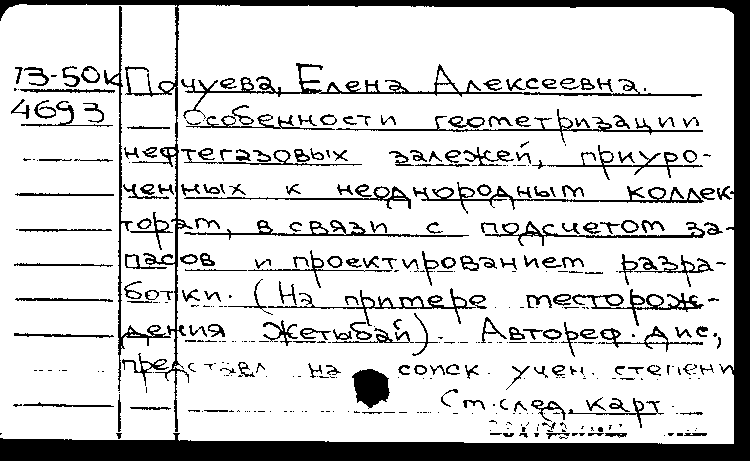 73-50к Почуева, Елена Алексеевна.
4693 Особенности геометризации
нефтегазовых залежей, приуро-
ченных к неоднородным коллек-
торам, в связи с подсчетом за-
пасов и проектированием разра-
ботки. (На примере месторож-
дения Жетыбай). Автореф. дис.,
представл на соиск. учен. степени
См. след. карт.